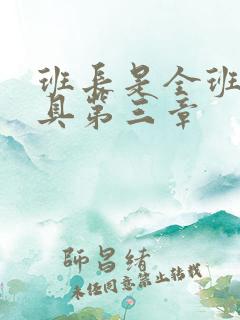 班长是全班
具第三章
师昌绪
未经同意禁止转载